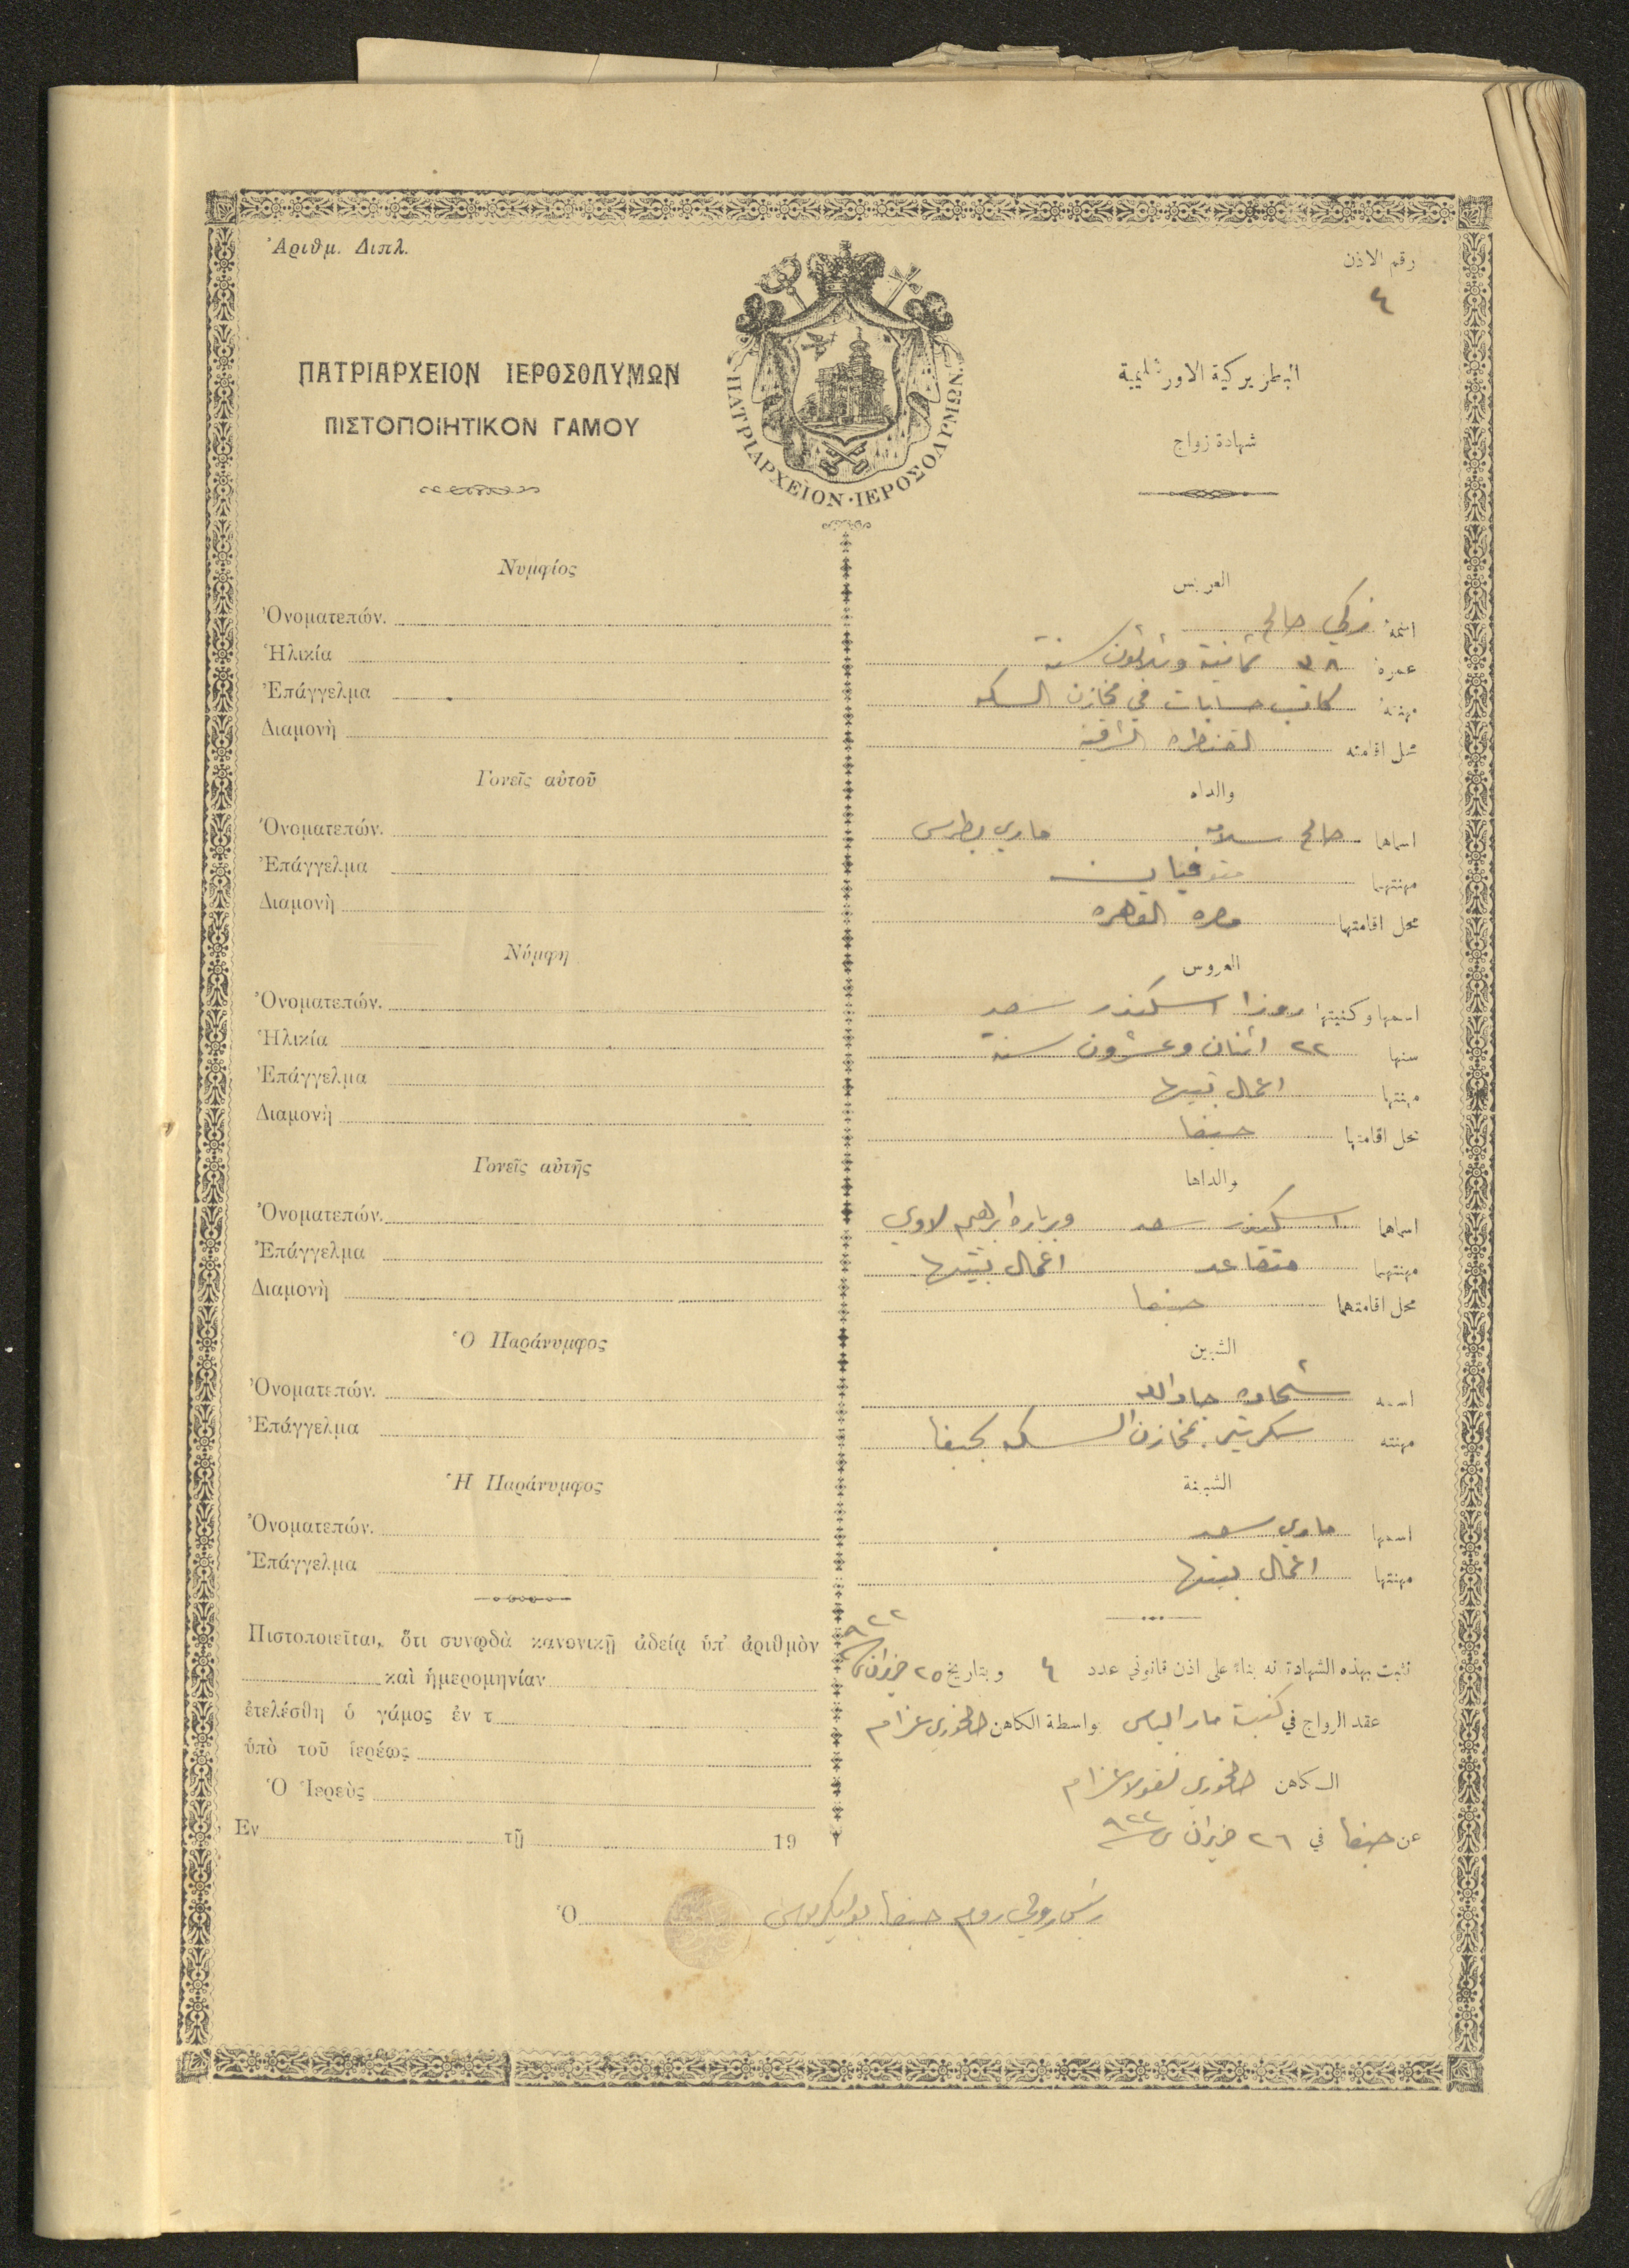 Ἀριθμ. Διπλ.
رقم الاذن
٤
ΠΑΤΡΙΑΡΧΕΙΟΝ ΙΕΡΟΣΟΛΥΜΩΝ
ΠΙΣΤΟΠΟΙΗΤΙΚΟΝ ΓΑΜΟΥ
ΠΑΤΡΙΑΡΧΕΙΟΝ·ΙΕΡΟΣΟΛΥΜΩΝ.
البطريركية الاورشليمية
شهادة زواج
Νυμφίος
Ὀνοματεπών.
Ἡλικία
Ἐπάγγελμα
Διαμονὴ
Γονεῖς αὐτοῦ
Ὀνοματεπών.
Ἐπάγγελμα
Διαμονὴ
Νύμφη
Ὀνοματεπών.
Ἡλικία
Ἐπάγγελμα
Διαμονὴ
Γονεῖς αὐτῆς
Ὀνοματεπών.
Ἐπάγγελμα
Διαμονὴ
Ὁ Παράνυμφος
Ὀνοματεπών.
Ἐπάγγελμα
Ἡ Παράνυμφος
Ὀνοματεπών.
Ἐπάγγελμα
Πιστοποιεῖται, ὅτι συνῳδὰ κανονικῇ ἀδείᾳ ὑπ' ἀριθμὸν
καὶ ἡμερομηνίαν
ἐτελέσθη ὁ γάμος ἐν τ
ὑπὸ τοῦ ἱερέως
Ὁ Ἱερεὺς
Ἐν τῇ 19
Ὁ
العريس
اسمه زكي صالح
عمره ٣٨ ثمانية وثلاثون سنة
مهنته كاتب حسابات في مخازن السكه
محل اقامته القنطره الشرقية
والداه
اسماهما صالح سلامه ماري بطرس
مهنتهما متوفيان
محل اقامتهما مصر القاهره
العروس
اسمها وكنيتها روزا اسكندر سعد
سنها ٢٢ اثنان وعشرون سنة
مهنتها اعمال بيتها
محل اقامتها حيفا
والداها
اسماهما اسكندر سعد وبرباره ابراهيم لاوي
مهنتهما متقاعد اعمال بيتها
محل اقامتهما حيفا
الشبين
اسمه شحاده جاد الله
مهنته سكرتير بمخازن السكه بحيفا
الشبينة
اسمها ماري سعد
مهنتها اعمال بيتها
نثبت بهذه الشهادة انه بناءً على اذن قانوني عدد ٤ وبتاريخ ٢٥ حزيران سنة ٩٢٢
عقد الزواج في كنيسة مار الياس بواسطة الكاهن الخوري عزام
الكاهن الخوري نقولا عزام
عن حيفا في ٢٦ حزيران سنة ٩٢٢
رئيس روحي روم حيفا